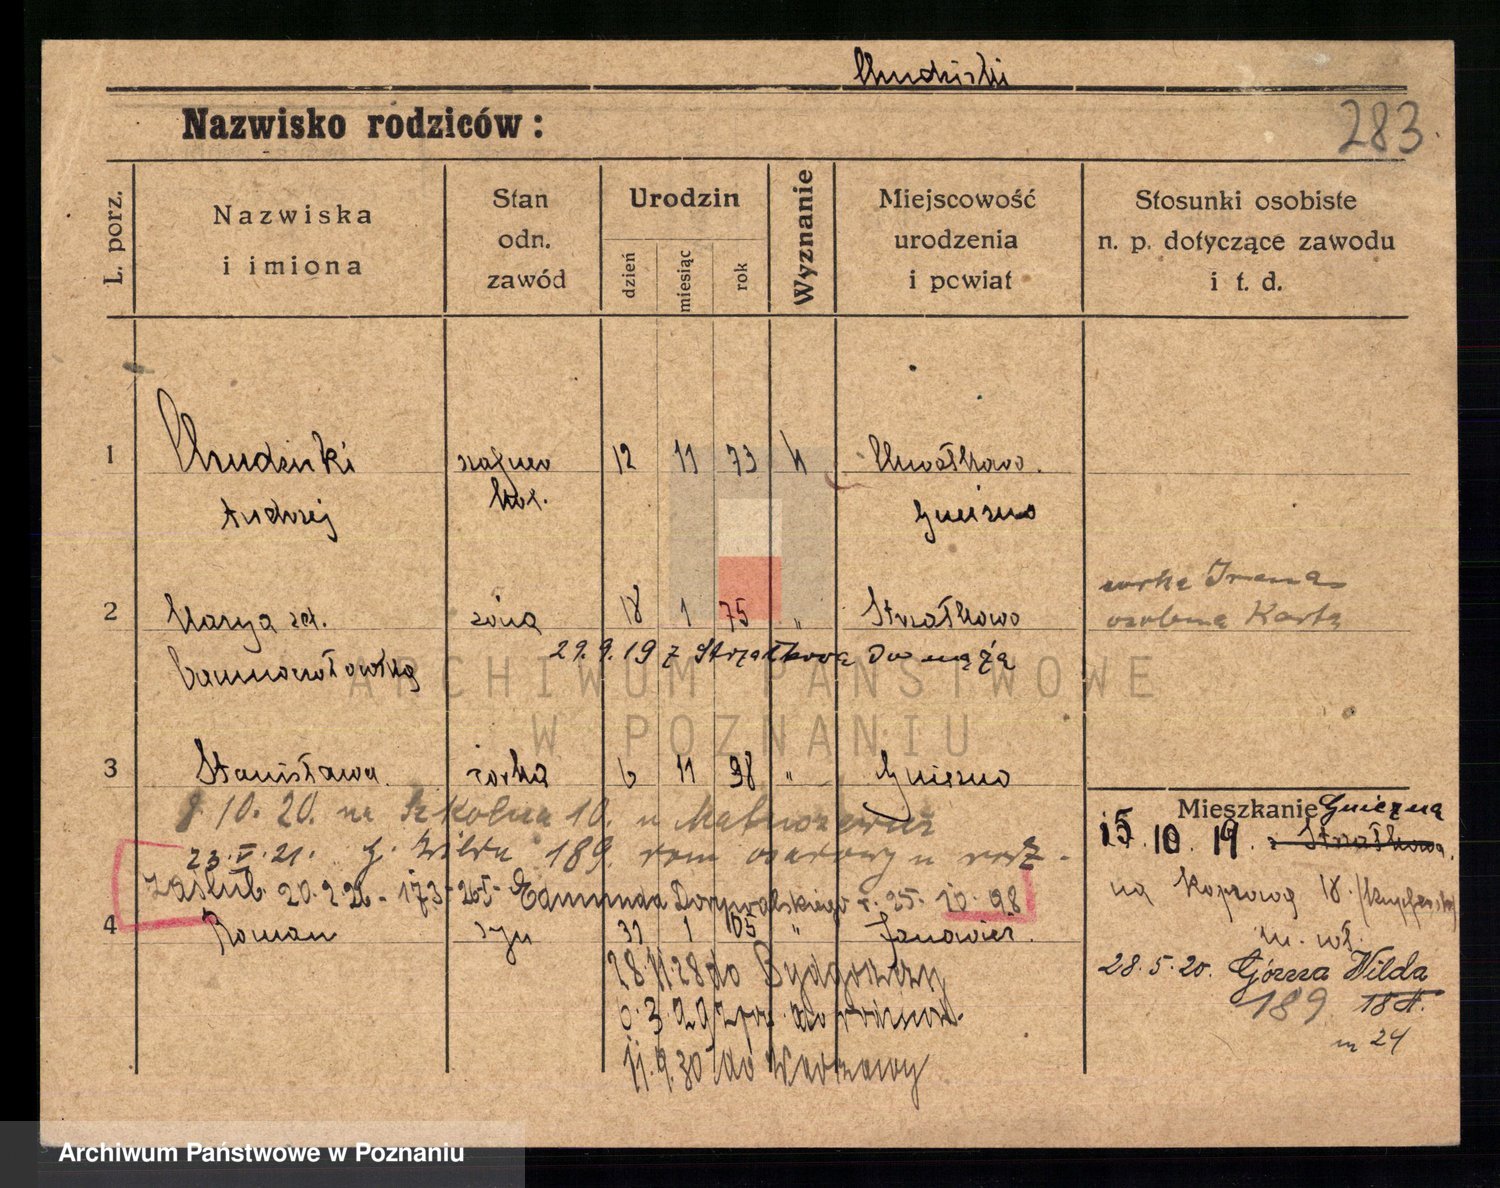 Chudziński
Nazwisko rodziców:
283.
L. porz.
Nazwiska
i imiona
Stan
odn.
zawód
Urodzin
dzień
miesiąc
rok
Wyznanie
Miejscowość
urodzenia
i powiat
Stosunki osobiste
n. p. dotyczące zawodu
i t. d.
1
Chudziński
12 11 73
Chwałkowo.
Andrzej
Gniezno
2
Marya
żona
18 1 75 "
Strzałkowo
córka Irena
osobną Kartę
29.9.19 z Strzałkowa do męża
3
Stanisława
córka
6 11 98 "
Gniezno
8 10. 20. na Szkolna 10. u Matuszewski
23. V. 21. G. Wilda 189.
zaślub. 20.2.26 - 173 - Edmunda 25. 10. 98
4
Roman
syn
31 1 05 "
Janowiec.
28.11.28 do Bydgoszczy
11.9.30 do Warszawy
Mieszkanie Gniezna
15. 10. 19. z Strzałkowa.
na 18.
m. wł.
28.5.20. Górna Wilda
189 184.
m 24
ARCHIWUM PAŃSTWOWE
W POZNANIU
Archiwum Państwowe w Poznaniu